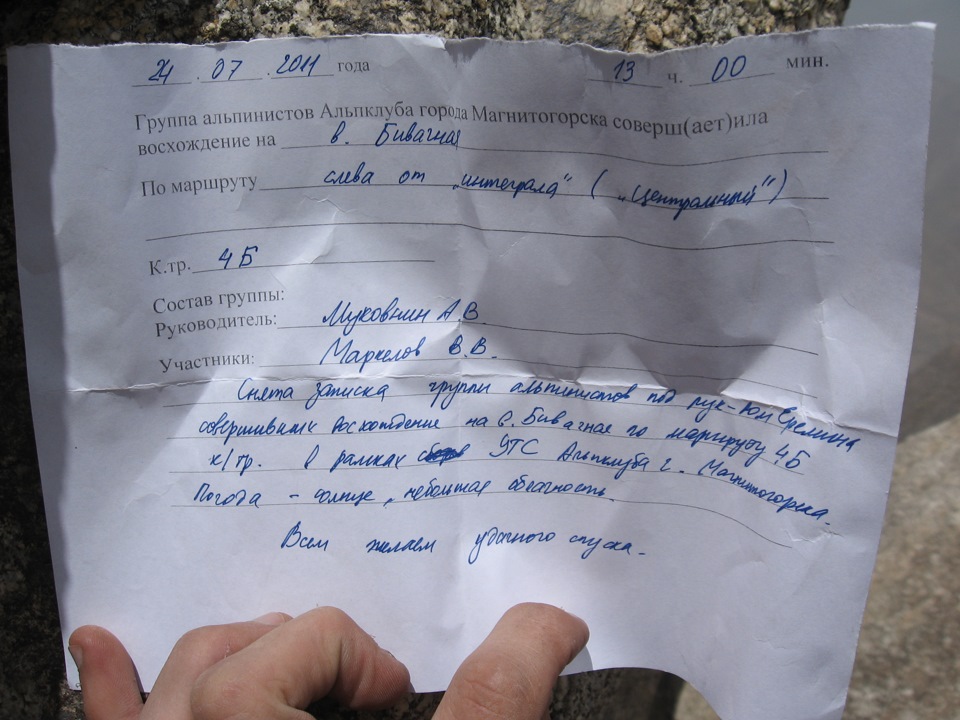 24.07.2011 года 13 ч. 00 мин.
Группа альпинистов Альпклуба города Магнитогорска соверш(ает)ила
восхождение на в. Бивачная
По маршруту слева от "интеграла" ("Центральный")
К.тр. 4Б
Состав группы:
Руководитель: Муковнин А.В.
Участники: Маркелов В.В.
Снята записка группы альпинистов под рук-ом Еремина
совершивших восхождение на в. Бивачная по маршруту 4Б
к/тр. в рамках УТС Альпклуба г. Магнитогорска.
Погода - солнце, небольшая облачность.
Всем желаем удачного спуска.